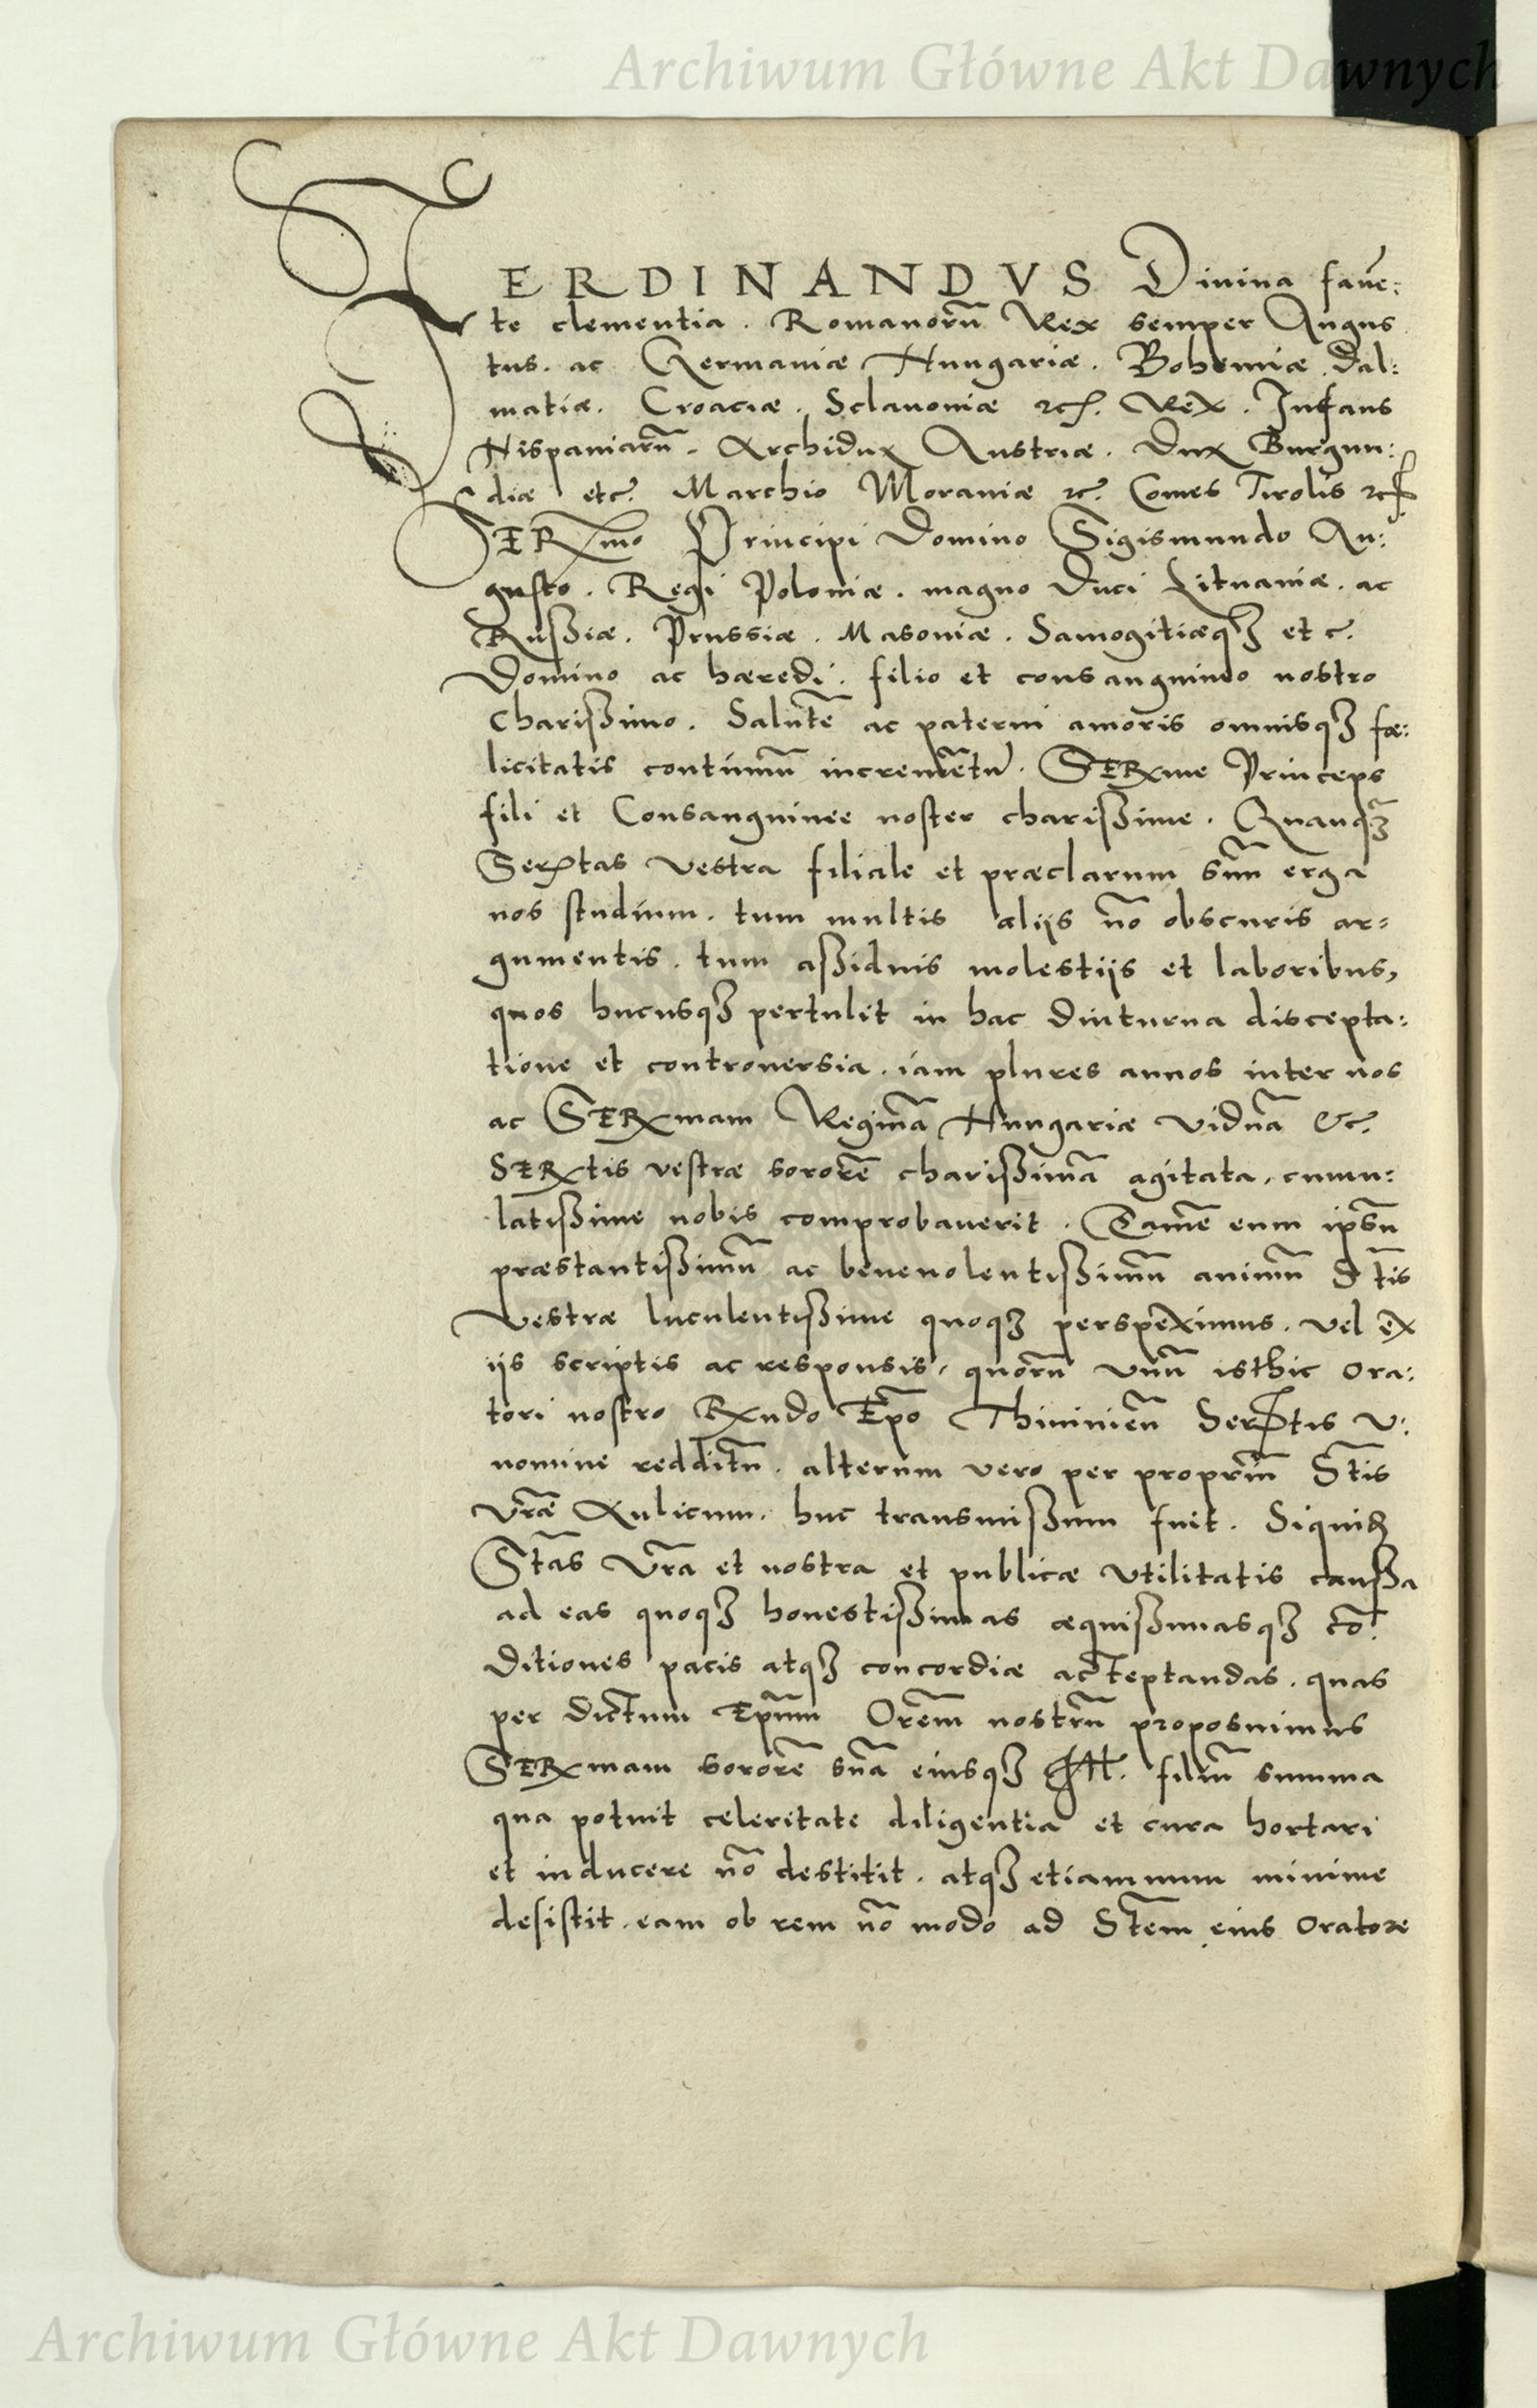 Archiwum Główne Akt Dawnych
FERDINANDVS Diuina faue͂:
te clementia. Romanorū Rex semper Augus
tus. ac Germaniæ Hungariæ. Bohemiæ. Dal:
matiæ. Croaciæ. Sclauoniæ ꝛc. Rex. Infans
Hispaniarū. Archidux Austriæ. Dux Burgun:
diæ etc. Marchio Morauiæ ꝛc. Comes Tirolis ꝛc.
SERmo Principi Domino Sigismundo Au:
gusto. Regi Poloniæ. magno Duci Lituaniæ. ac
Rußiæ. Prussiæ. Masouiæ. Samogitiæqꝫ etc.
Domino ac hæredi. filio et consanguineo nostro
Charißimo. Salutē ac paterni amoris omnisqꝫ fœ:
licitatis continuū incremētū. SERme Princeps
fili et Consanguinee noster charißime. Quanqꝫ̄
Sertas Vestra filiale et præclarum suū erga
nos studium. tum multis alijs nō obscuris ar:
gumentis. tum aßiduis molestijs et laboribus,
quos hucusqꝫ pertulit in hac diuturna discepta:
tione et controuersia. iam plures annos inter nos
ac SERmam Reginā Hungariæ viduā &c.
SERtis vestræ sororē charißimā agitata, cumu:
latißime nobis comprobauerit. Tamē eum ipsū
præstantißimū ac beneuolentißimū animū S̄tis
Vestræ luculentißime quoqꝫ perspeximus. vel ex
ijs scriptis ac responsis, quorū vnū isthic Ora:
tori nostro Rndo Ep̄o Thininien̄ Sertis V:
nomine redditū. alterum vero per propriū S̄tis
Vr̄æ Aulicum. huc transmißum fuit. Siquidē
S̄tas Vr̄a et nostra et publicæ vtilitatis caußa
ad eas quoqꝫ honestißimas æquißimasqꝫ cō:
ditiones pacis atqꝫ concordiæ acceptandas. quas
per dictum Ep̄um Or̄em nostrū proposuimus
SERmam sororē suā eiusqꝫ Ill. filiū summa
qua potuit celeritate diligentia et cura hortari
et inducere nō destitit. atqꝫ etiamnum minime
desistit. eam ob rem nō modo ad S̄tem eius Oratore
Archiwum Główne Akt Dawnych